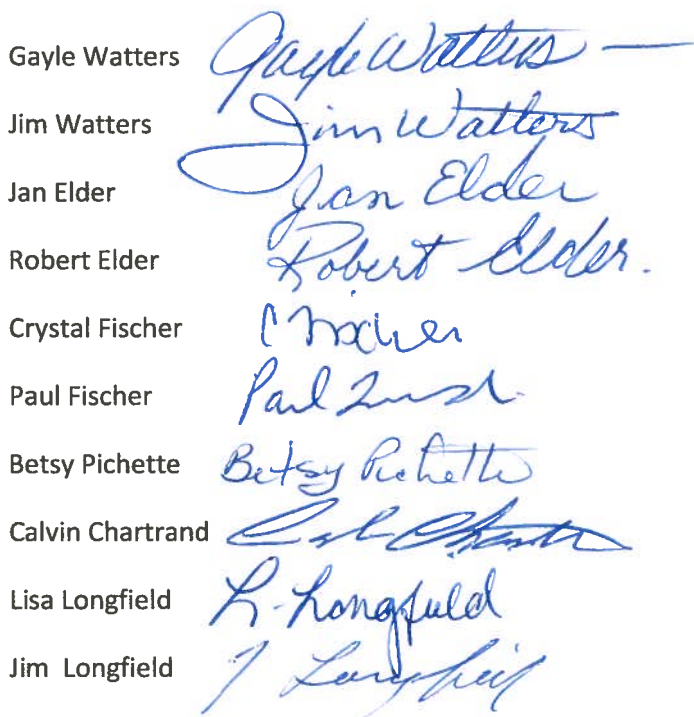 Gayle Watters Gayle Watters
Jim Watters Jim Watters
Jan Elder Jan Elder
Robert Elder Robert Elder.
Crystal Fischer C Fischer
Paul Fischer Paul
Betsy Pichette Betsy Pichette
Calvin Chartrand
Lisa Longfield L. Longfield
Jim Longfield J Longfield